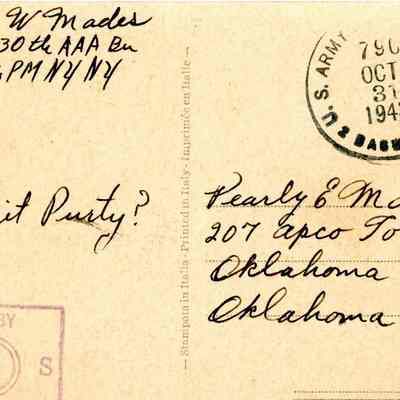 W Mades
30th AAA Bn
PM NY NY
it Purty?
BY
S
Stampata in Italia - Printed in Italy - Imprimée en Italie
U. S. ARMY
790
OCT
31
194
2 BASE
Pearly E Ma
207 Apco To
Oklahoma
Oklahoma